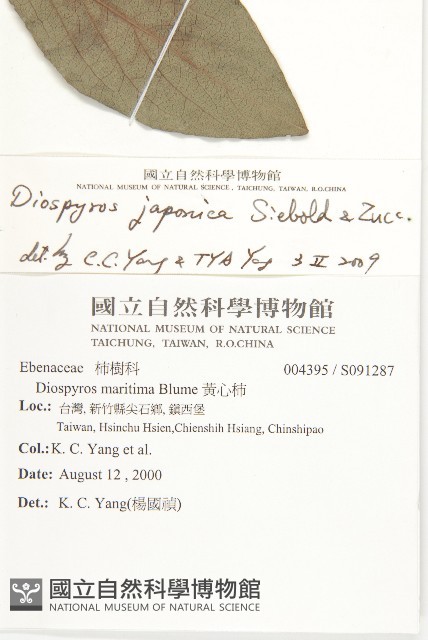 國立自然科學博物館
NATIONAL MUSEUM OF NATURAL SCIENCE , TAICHUNG, TAIWAN, R.O.CHINA
Diospyros japonica Siebold & Zucc.
det. by C.C. Yang & TYA Yang 3 II 2009
國立自然科學博物館
NATIONAL MUSEUM OF NATURAL SCIENCE
TAICHUNG, TAIWAN, R.O.CHINA
Ebenaceae 柿樹科 004395 / S091287
Diospyros maritima Blume 黃心柿
Loc.: 台灣, 新竹縣尖石鄉, 鎮西堡
Taiwan, Hsinchu Hsien,Chienshih Hsiang, Chinshipao
Col.: K. C. Yang et al.
Date: August 12 , 2000
Det.: K. C. Yang(楊國禎)
國立自然科學博物館
NATIONAL MUSEUM OF NATURAL SCIENCE